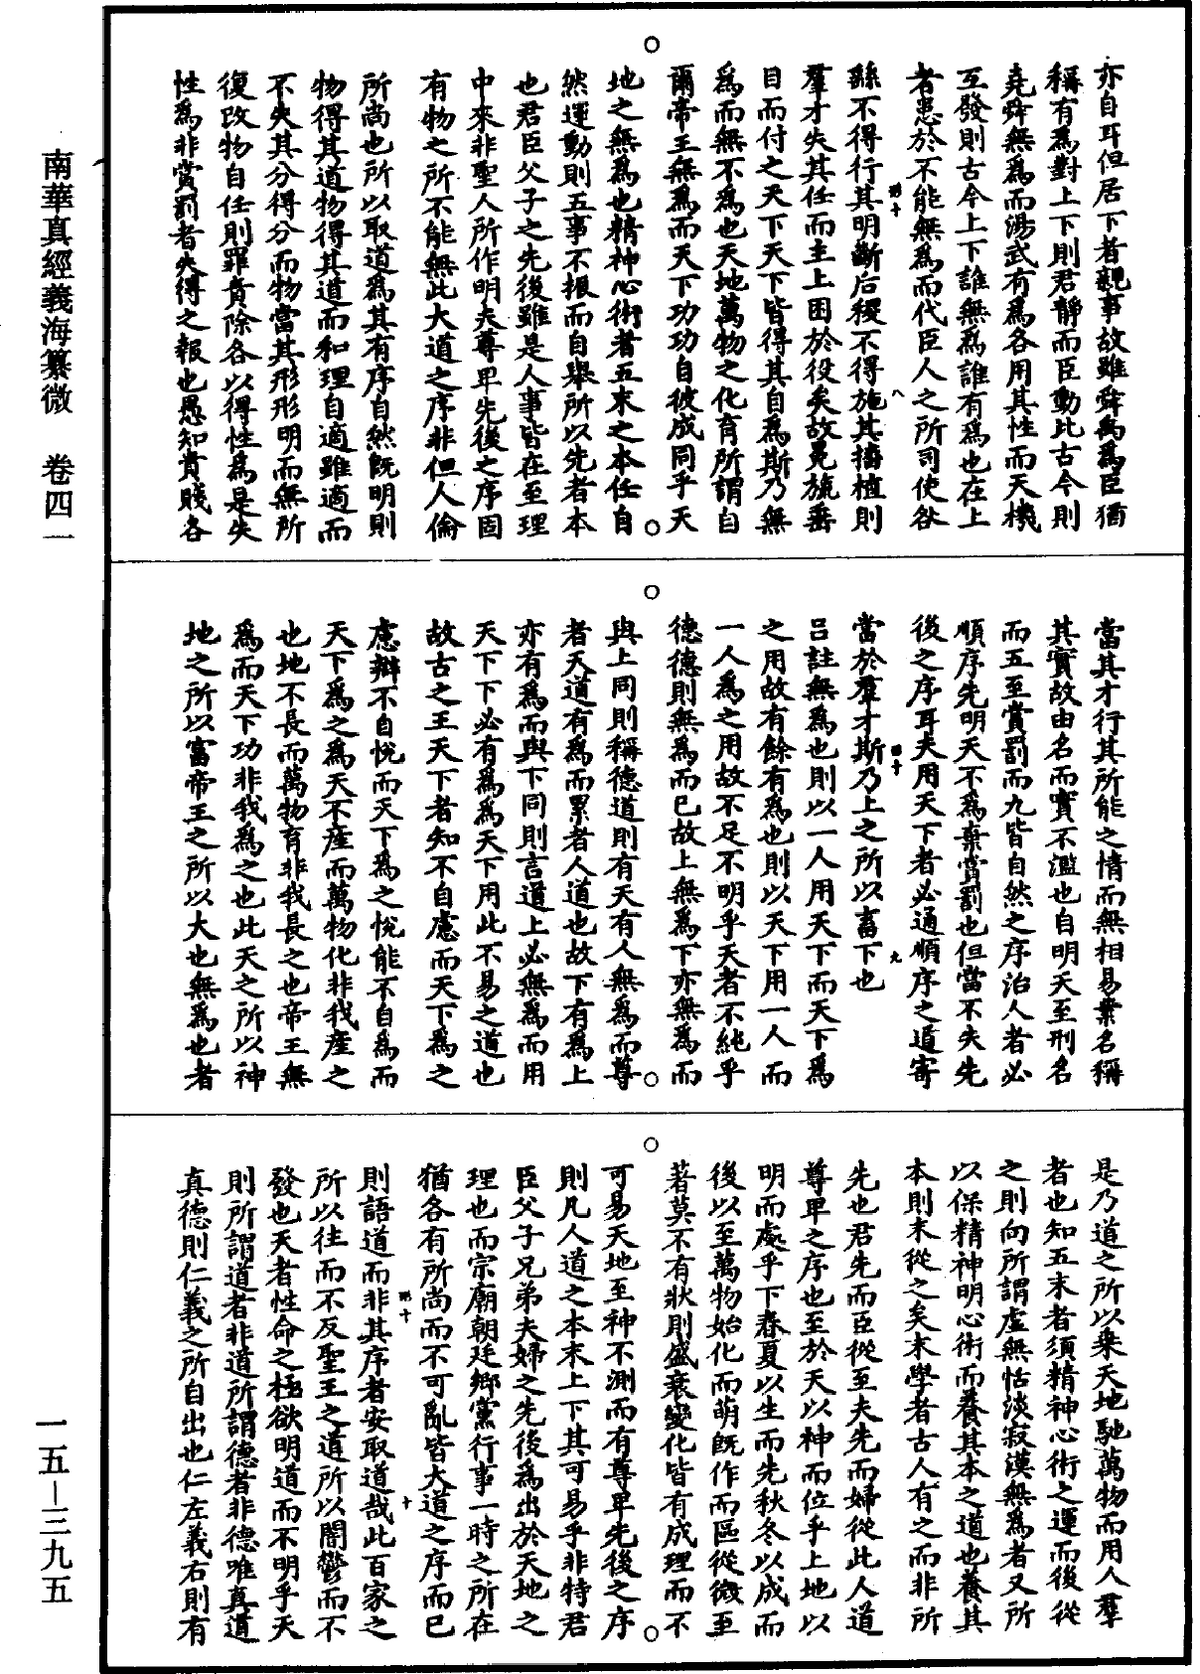 亦自耳但居下者親事故雖舜禹爲臣猶
稱有爲對上下則君靜而臣動比古今則
堯舜無爲而湯武有爲各用其性而天機
互發則古今上下誰無爲誰有爲也在上
者患於不能無爲而代臣人之所司使咎
繇不得行其明斷后稷不得施其播植則
羣才失其任而主上困於役矣故冕旒垂
目而付之天下天下皆得其自爲斯乃無
爲而無不爲也天地萬物之化育所謂自
爾帝王無爲而天下功功自彼成同乎天
地之無爲也精神心術者五末之本任自
然運動則五事不振而自舉所以先者本
也君臣父子之先後雖是人事皆在至理
中來非聖人所作明夫尊卑先後之序固
有物之所不能無此大道之序非但人倫
所尚也所以取道爲其有序自然既明則
物得其道物得其道而和理自適雖適而
不失其分得分而物當其形形明而無所
復改物自任則罪責除各以得性爲是失
性爲非賞罰者失得之報也愚知貴賤各
當其才行其所能之情而無相易業名稱
其實故由名而實不濫也自明天至刑名
而五至賞罰而九皆自然之序治人者必
順序先明天不爲棄賞罰也但當不失先
後之序耳夫用天下者必通順序之道寄
當於羣才斯乃上之所以畜下也
呂註無爲也則以一人用天下而天下爲
之用故有餘有爲也則以天下用一人而
一人爲之用故不足不明乎天者不純乎
德德則無爲而已故上無爲下亦無爲而
與上同則稱德道則有天有人無爲而尊
者天道有爲而累者人道也故下有爲上
亦有爲而與下同則言道上必無爲而用
天下下必有爲爲天下用此不易之道也
故古之王天下者知不自慮而天下爲之
慮辯不自悅而天下爲之悅能不自爲而
天下爲之爲天不產而萬物化非我產之
也地不長而萬物育非我長之也帝王無
爲而天下功非我爲之也此天之所以神
地之所以富帝王之所以大也無爲也者
是乃道之所以乗天地馳萬物而用人羣
者也知五末者須精神心術之運而後從
之則向所謂虛無恬淡寂漠無爲者又所
以保精神明心術而養其本之道也養其
本則末從之矣末學者古人有之而非所
先也君先而臣從至夫先而婦從此人道
尊卑之序也至於天以神而位乎上地以
明而處乎下春夏以生而先秋冬以成而
後以至萬物始化而萌既作而區從微至
著莫不有狀則盛衰變化皆有成理而不
可易天地至神不測而有尊卑先後之序
則凡人道之本末上下其可易乎非特君
臣父子兄弟夫婦之先後爲出於天地之
理也而宗廟朝廷鄉黨行事一時之所在
猶各有所尚而不可亂皆大道之序而已
則語道而非其序者安取道哉此百家之
所以往而不反聖王之道所以闇鬱而不
發也天者性命之極欲明道而不明乎天
則所謂道者非道所謂德者非德唯真道
真德則仁義之所自出也仁左義右則有
南華真經義海纂微 卷四一
一五－三九五